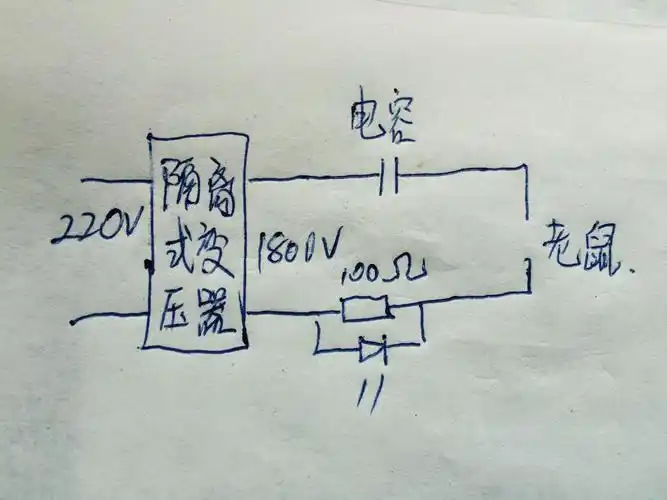 电容
隔离
式变
压器
220V
1800V
100Ω
老鼠.